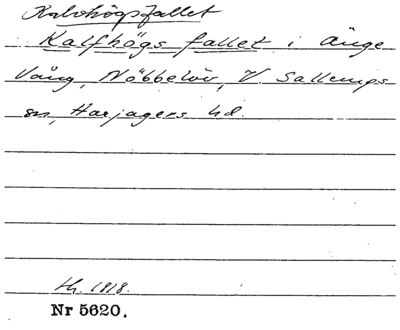 Kalvhögsfallet
Kalfhögs fallet i Änge
Vång, Nöbbelöv, V. Sallerups
sn, Harjagers hd.
th. 1918.
Nr 5620.